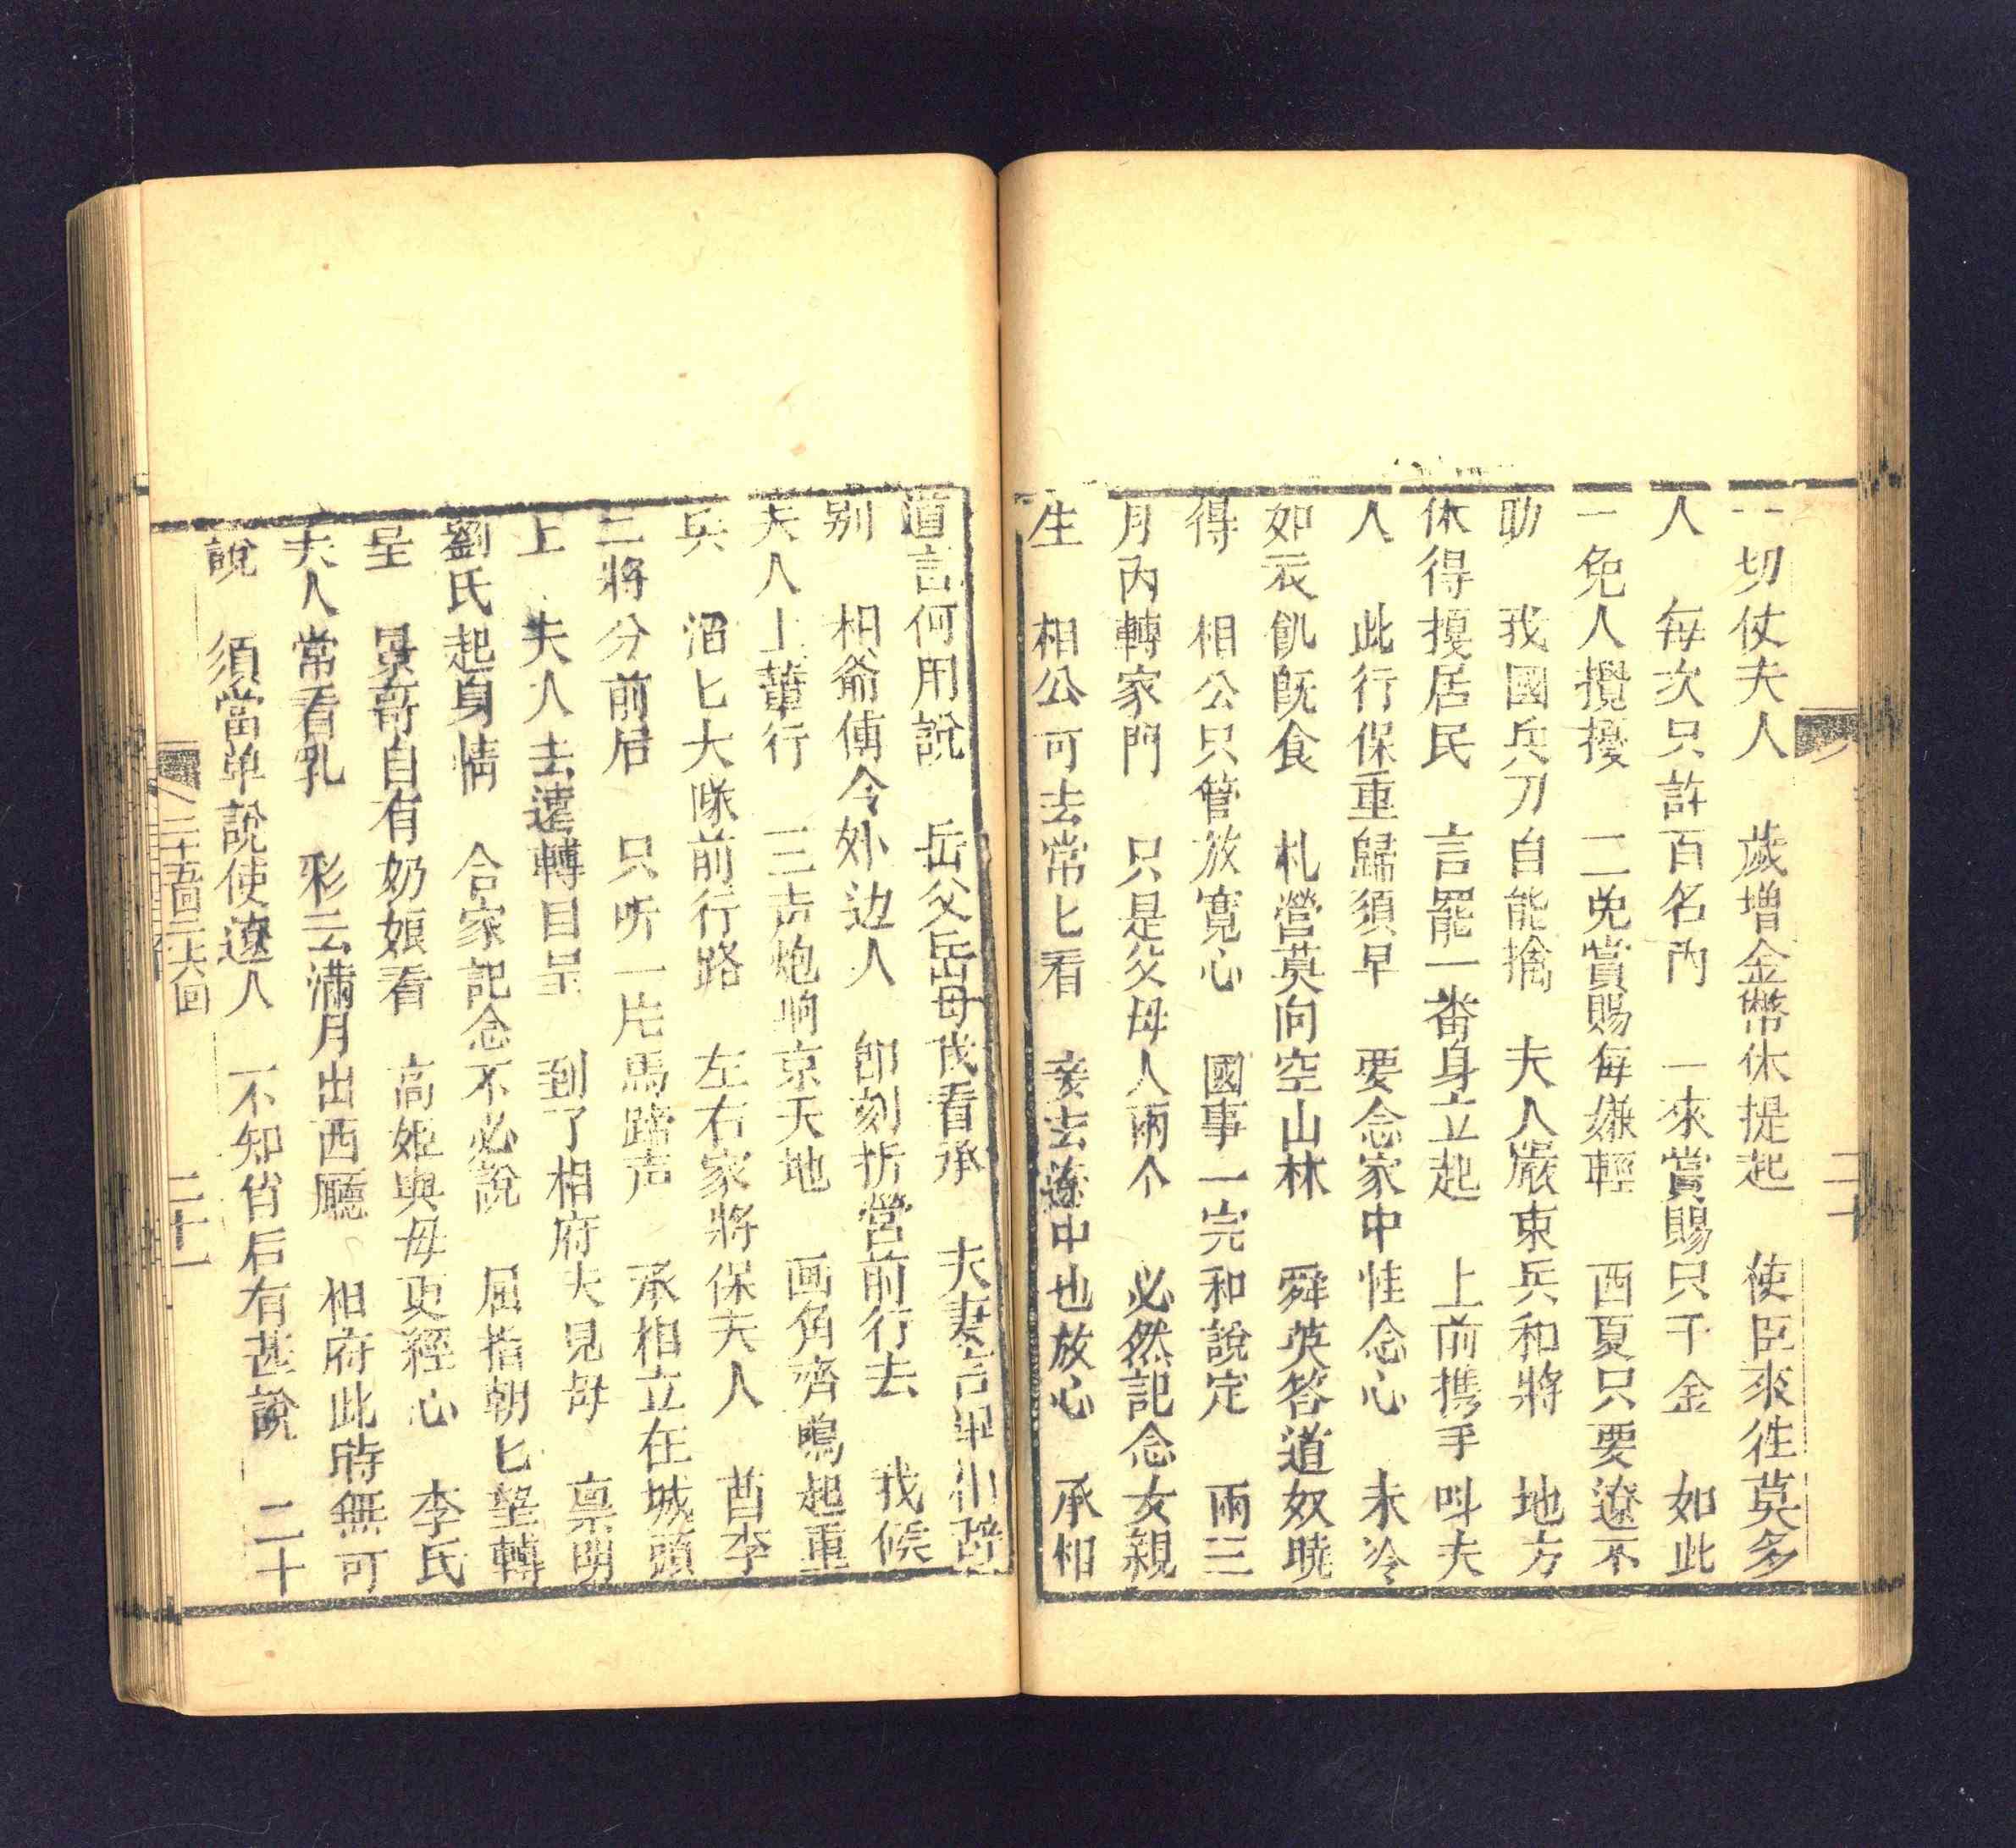 一切仗夫人　歲增金幣休提起　使臣來徃莫多
人　每次只許百名內　一來賞賜只千金　如此
一免人攪擾　二免賞賜每嫌輕　西夏只要遼不
助　我國兵刀自能擒　夫人嚴束兵和將　地方
休得擾居民　言罷一番身立起　上前携手呌夫
人　此行保重歸須早　要念家中惟念心　未冷
如衣飢旣食　札營莫向空山林　舜英答道奴曉
得　相公只管放寬心　國事一完和說定　兩三
月內轉家門　只是父母人兩个　必然記念女親
生　相公可去常匕看　妾去遼中也放心　承相
道言何用說　岳父岳母我看承　夫妻言畢
別　相爺傳令外边人　卽刻折營前行去　我候
夫人上輦行　三声炮响京天地　画角齊鳴起重
兵　滔匕大隊前行路　左右家將保夫人　酋李
二將分前后　只听一片馬蹄声　承相立在城頭
上　夫人去遠轉目呈　到了相府夫見母　禀明
劉氏起身情　合家記念不必說　屈指朝匕望轉
呈　景哥自有奶娘看　高姬與母更經心　李氏
夫人常看乳　彩云滿月出西廳　相府此時無可
說　須當单說使遼人　不知俏后有甚說　二十
二十
二十五回 二六回
二十一